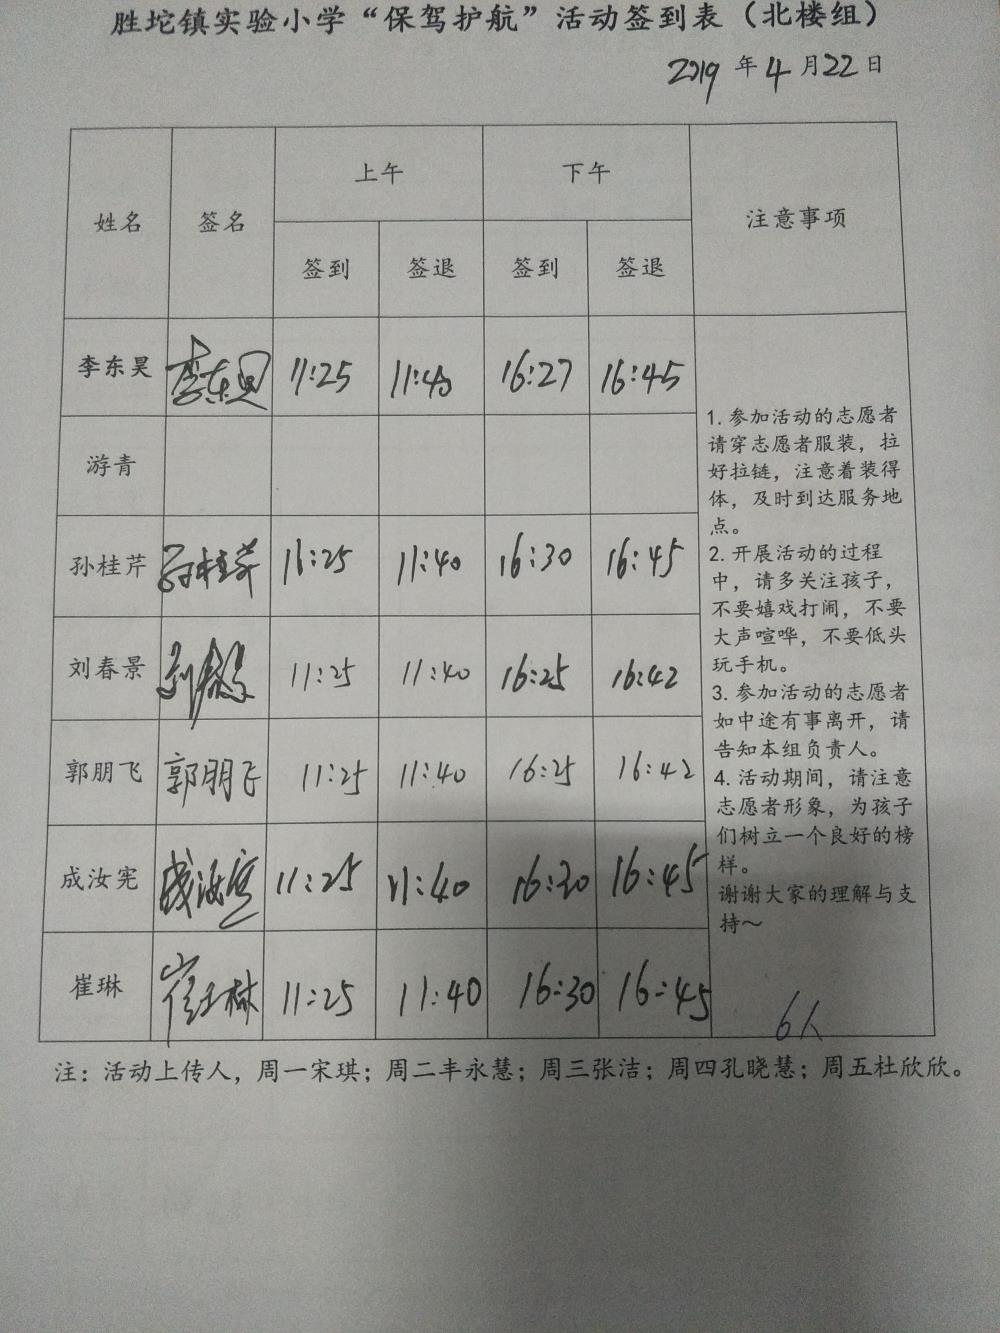 胜坨镇实验小学“保驾护航”活动签到表（北楼组）
2019年4月22日
姓名 签名 上午 下午 注意事项
签到 签退 签到 签退
李东昊 李东昊 11:25 11:40 16:27 16:45
游青
孙桂芹 孙桂芹 11:25 11:40 16:30 16:45
刘春景 刘春景 11:25 11:40 16:25 16:42
郭朋飞 郭朋飞 11:25 11:40 16:25 16:42
成汝宪 成汝宪 11:25 11:40 16:30 16:45
崔琳 崔琳 11:25 11:40 16:30 16:45
1. 参加活动的志愿者
请穿志愿者服装，拉
好拉链，注意着装得
体，及时到达服务地
点。
2. 开展活动的过程
中，请多关注孩子，
不要嬉戏打闹，不要
大声喧哗，不要低头
玩手机。
3. 参加活动的志愿者
如中途有事离开，请
告知本组负责人。
4. 活动期间，请注意
志愿者形象，为孩子
们树立一个良好的榜
样。
谢谢大家的理解与支
持～
6人
注：活动上传人，周一宋琪；周二丰永慧；周三张洁；周四孔晓慧；周五杜欣欣。